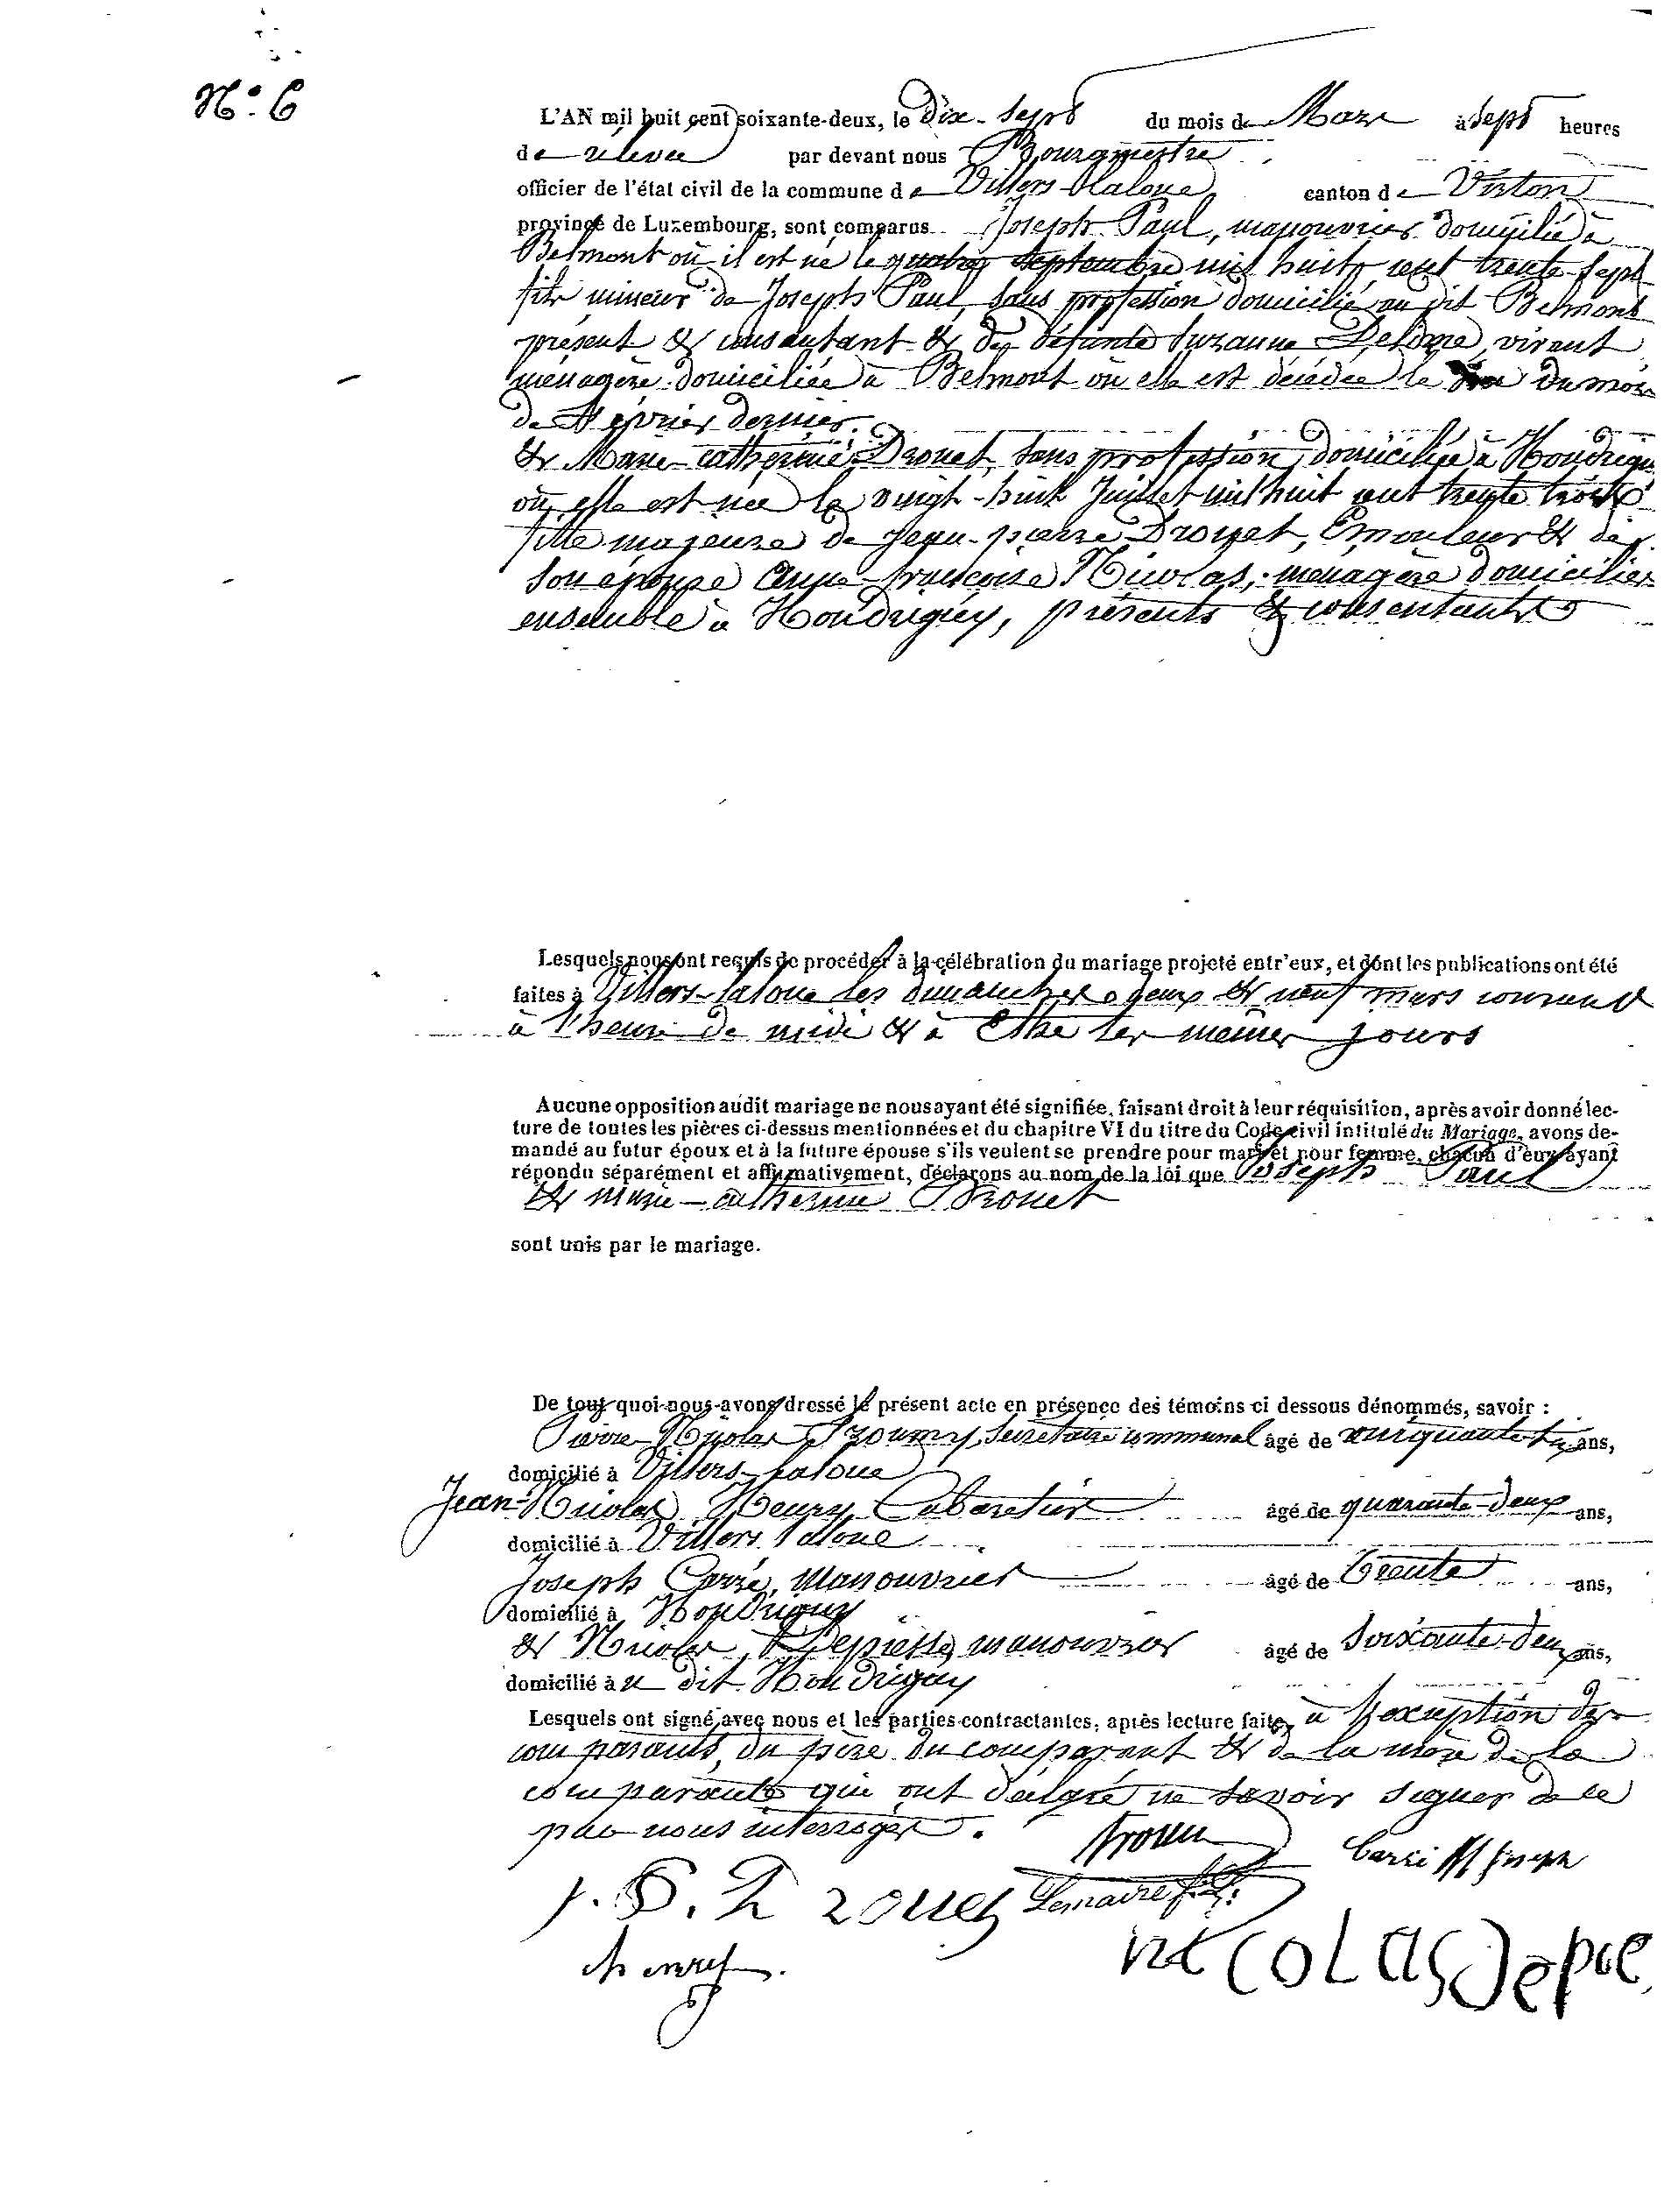 N.° 6
L'AN mil huit cent soixante-deux, le Dix-Sept du mois de Mars à Sept heures
de relevée par devant nous Bourgmestre
officier de l'état civil de la commune de Villers-laLoue canton de Virton
province de Luxembourg, sont comparus Joseph Paul, manouvrier domicilié à
Belmont où il est né le quatre Septembre mil huit cent trente Sept
fils mineur de Joseph Paul, Sans profession domicilié au dit Belmont
présent & consentant & de défunte Suzanne, vivant
ménagère domiciliée à Belmont où elle est décédée le du mois
de Février dernier.
& Marie-catherine Drouet, Sans profession, domiciliée à Houdrigny
où elle est née le vingt-huit Juillet mil huit cent trente trois
fille majeure de Jean-pierre Drouet, Emouleur & de
Son épouse Anne-françoise Nicolas, ménagère domiciliés
ensemble à Houdrigny, présents & consentants
Lesquels nous ont requis de procéder à la célébration du mariage projeté entr'eux, et dont les publications ont été
faites à Villers-laloue les dimanches deux & neuf mars courant
à l'heure de midi & à Ethe les mêmes jours
Aucune opposition audit mariage ne nous ayant été signifiée, faisant droit à leur réquisition, après avoir donné lec-
ture de toutes les pièces ci-dessus mentionnées et du chapitre VI du titre du Code civil intitulé du Mariage, avons de-
mandé au futur époux et à la future épouse s'ils veulent se prendre pour mari et pour femme, chacun d'eux ayant
répondu séparément et affirmativement, déclarons au nom de la loi que Joseph Paul
& marie-catherine Drouet
sont unis par le mariage.
De tout quoi nous avons dressé le présent acte en présence des témoins ci dessous dénommés, savoir :
Pierre-Nicolas, Secrétaire communal âgé de ans,
domicilié à Villers-laloue
Jean-Nicolas Henry Cabaretier âgé de quarante-deux ans,
domicilié à Villers laloue
Joseph Carré, Manouvrier âgé de trente ans,
domicilié à Houdrigny
& Nicolas Depiesse, manouvrier âgé de Soixante-deux ans,
domicilié à u dit Houdrigny
Lesquels ont signé avec nous et les parties contractantes, après lecture faite, à l'exception des
comparants, du père du comparant & de la mère de la
comparante qui ont déclaré ne savoir signer de ce
par nous interrogés.
Carré Joseph
J. P. Drouet Lemaire
nicolas Depie